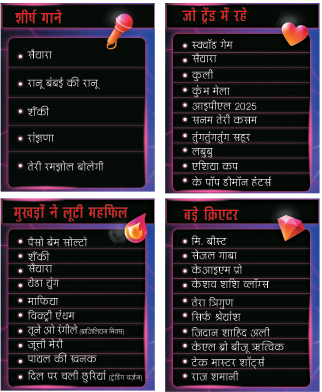 शीर्ष गाने
सैयारा
रानू बंबई की रानू
शॅकी
रांझणा
तेरी रमझोल बोलेगी
जो ट्रेंड में रहे
स्क्वॉड गेम
सैयारा
कुली
कुंभ मेला
आइपीएल 2025
सनम तेरी कसम
तुंगतुंगतुंग सहूर
लबुबु
एशिया कप
के पॉप डीमॉन हंटर्स
मुखड़ों ने लूटी महफिल
पैसो बेम सोल्टो
शॅकी
सैयारा
येडा युंग
माफिया
विक्ट्री एंथम
तूने ओ रंगीले
जूती मेरी
पायल की खनक
दिल पर चली छुरियां (ट्रेंडिंग वर्जन)
बड़े क्रिएटर
मि. बीस्ट
सेजल गाबा
केआइएम प्रो
केशव शशि व्लॉग्स
तेरा त्रिगुण
सिर्फ श्रेयांश
जिदान शाहिद अली
केएल ब्रो बीजू ऋत्विक
टेक मास्टर शॉर्ट्स
राज शमानी